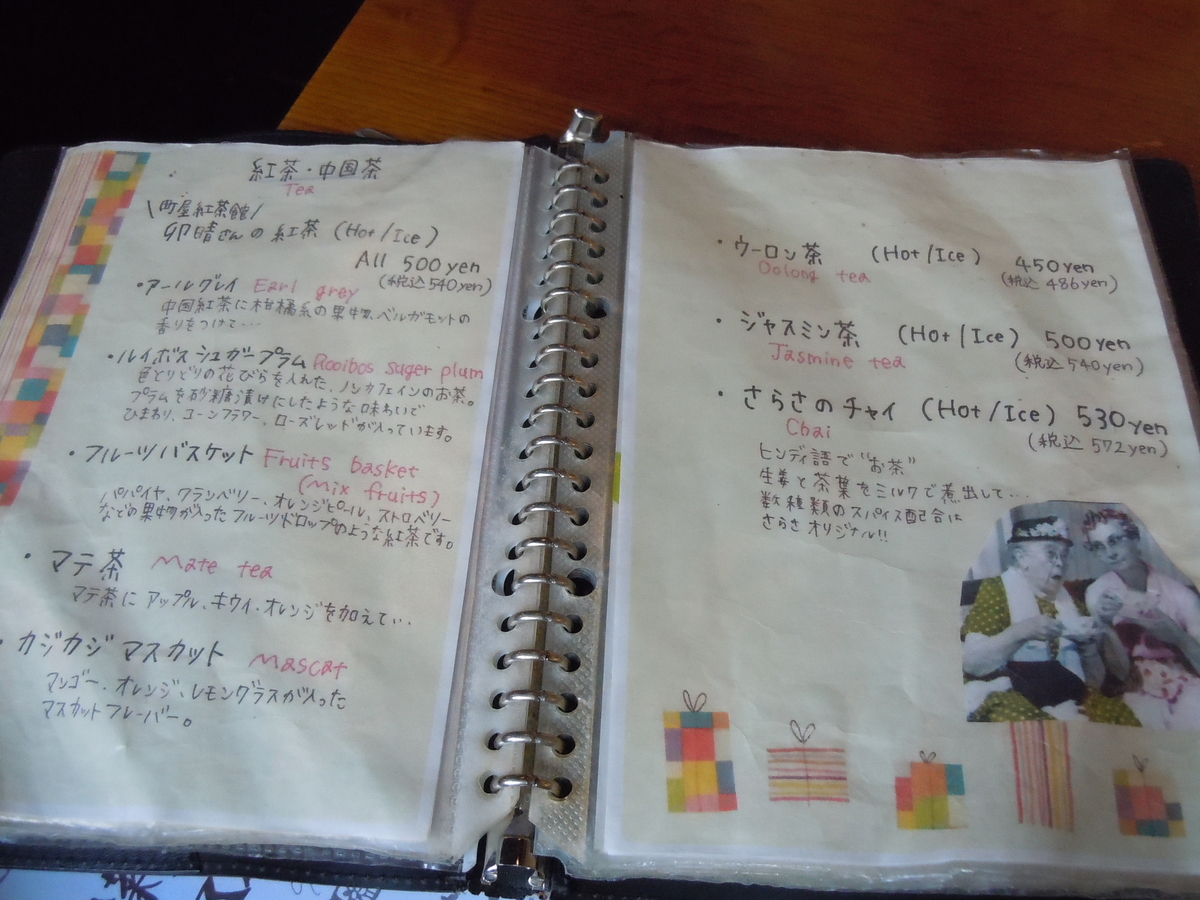 紅茶・中国茶
Tea
\町屋紅茶館/
卯晴さんの紅茶 (Hot/Ice)
All 500yen
(税込540yen)
・アールグレイ Earl grey
中国紅茶に柑橘系の果物、ベルガモットの
香りをつけて…
・ルイボスシュガープラム Rooibos suger plum
色とりどりの花びらを入れた、ノンカフェインのお茶。
プラムを砂糖漬けにしたような味わいで
ひまわり、コーンフラワー、ローズレッドが入っています。
・フルーツバスケット Fruits basket
(Mix fruits)
パパイヤ、クランベリー、オレンジピール、ストロベリー
などの果物が入ったフルーツドロップのような紅茶です。
・マテ茶 Mate tea
マテ茶にアップル、キウイ・オレンジを加えて…
・カジカジマスカット Mascat
マンゴー、オレンジ、レモングラスが入った
マスカットフレーバー。
・ウーロン茶 (Hot/Ice) 450yen
Oolong tea (税込486yen)
・ジャスミン茶 (Hot/Ice) 500yen
Jasmine tea (税込540yen)
・さらさのチャイ (Hot/Ice) 530yen
Chai (税込572yen)
ヒンディ語で"お茶"
生姜と茶葉をミルクで煮出して…
数種類のスパイス配合は
さらさオリジナル!!